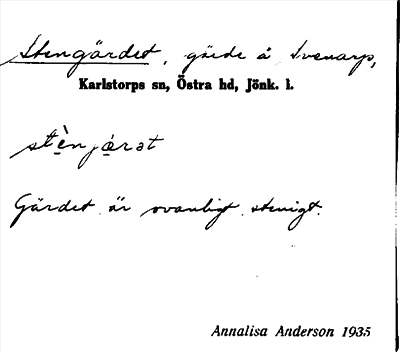 Stengärdet, gärde å Svenarp,
Karlstorps sn, Östra hd, Jönk. l.
stènjæ̀rət
Gärdet är ovanligt stenigt.
Annalisa Anderson 1935